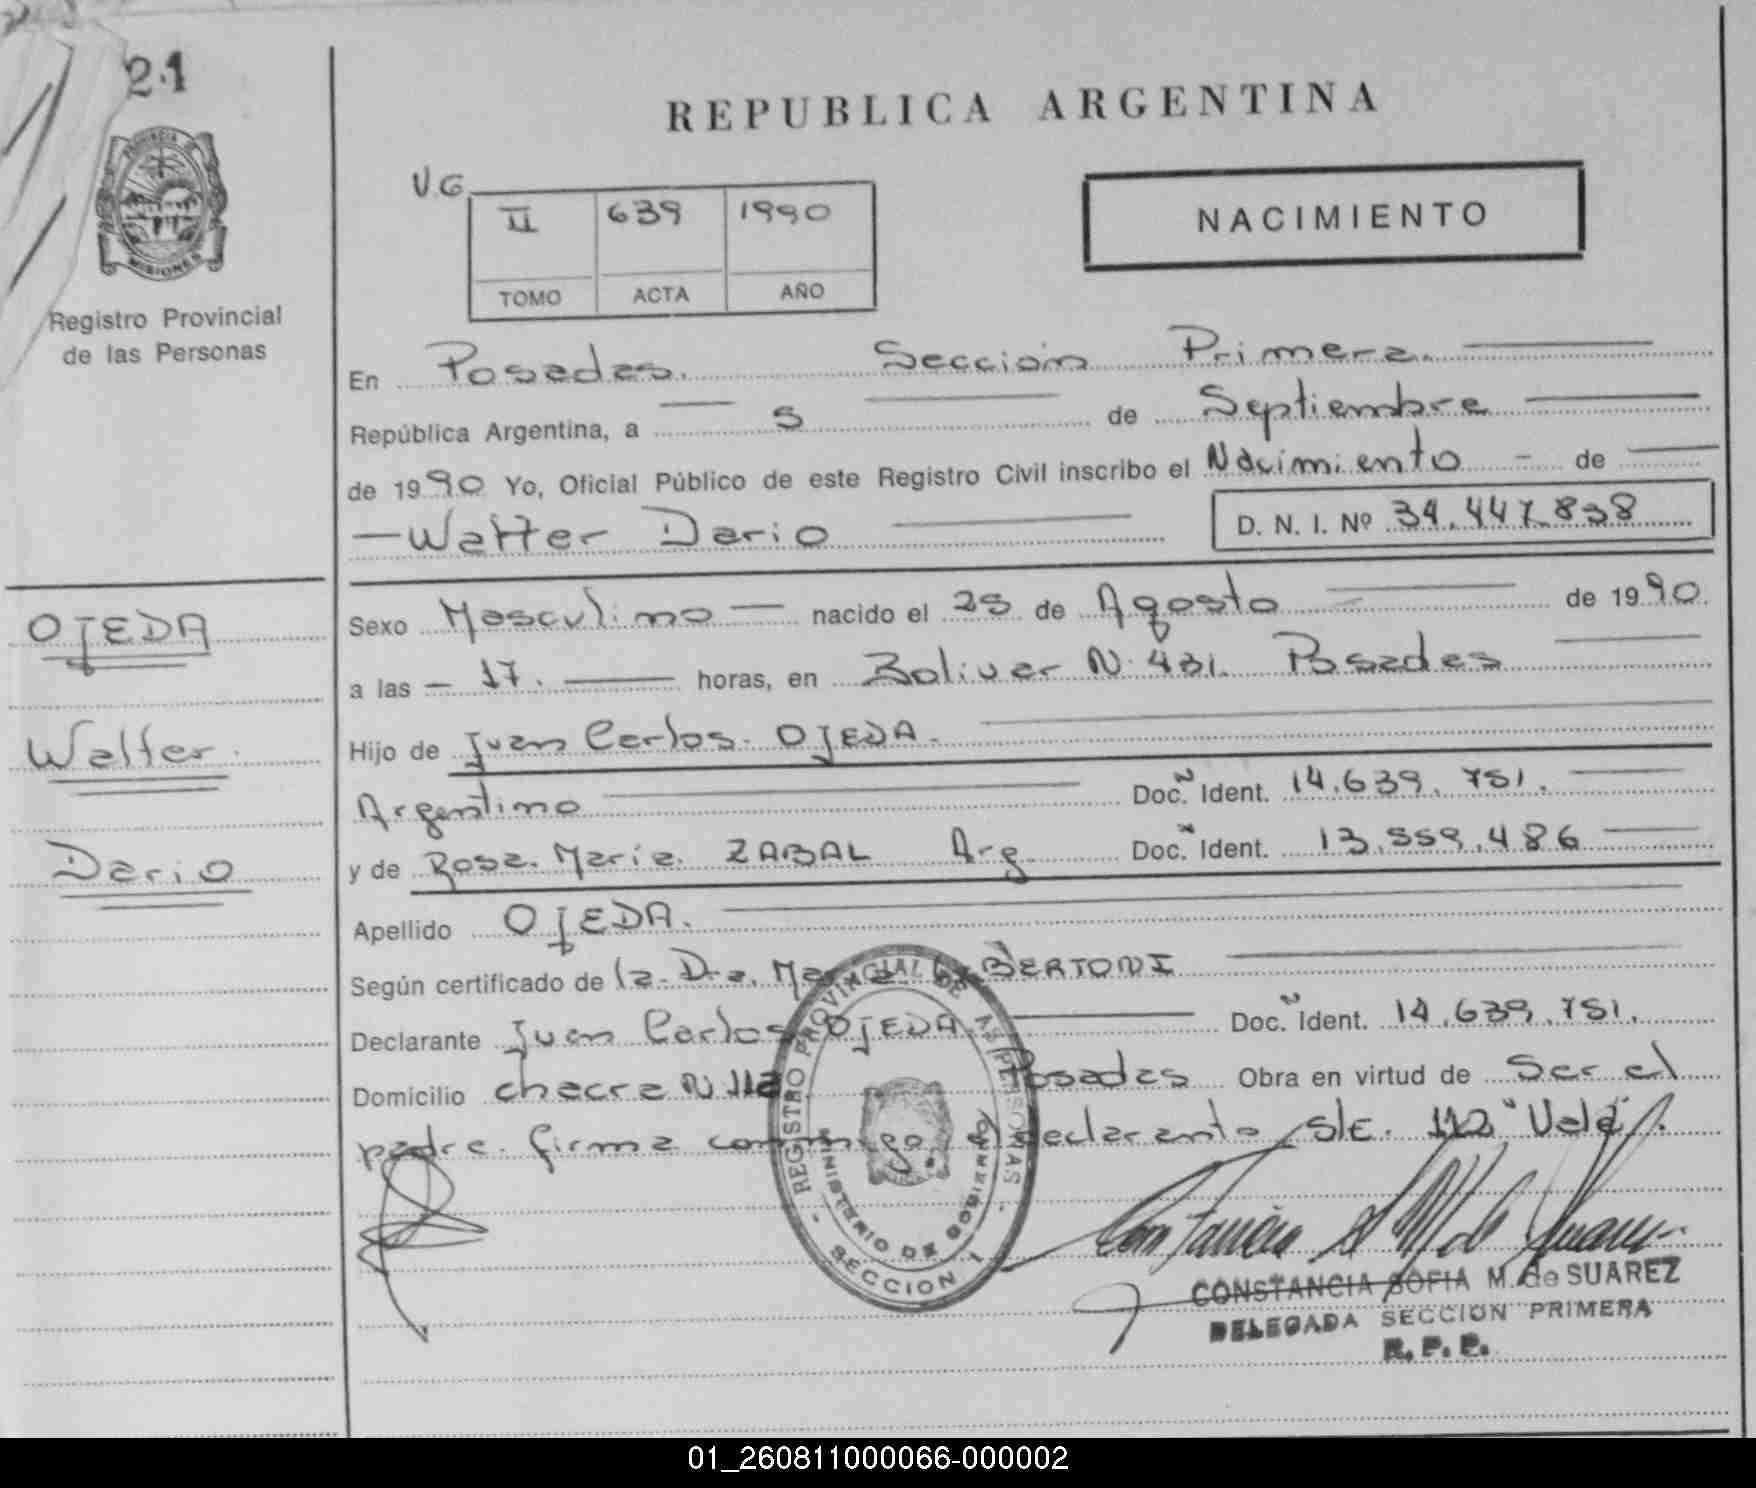 21
PROVINCIA DE
MISIONES
Registro Provincial
de las Personas
REPUBLICA ARGENTINA
V.G.
II 639 1990
TOMO ACTA AÑO
NACIMIENTO
En Posadas. Sección Primera.
República Argentina, a 5 de Septiembre
de 1990 Yo, Oficial Público de este Registro Civil inscribo el Nacimiento - de
Walter Dario
D. N. I. Nº 34.447.838
OJEDA
Walter.
Dario
Sexo Masculino nacido el 25 de Agosto de 1990.
a las 17. horas, en Bolivar N. 431. Posadas
Hijo de Juan Carlos. OJEDA.
Argentino Doc. Ident. 14.639.751.
y de Rosa. Maria. ZABAL Arg. Doc. Ident. 13.559.486
Apellido OJEDA.
Según certificado de la. Dra. BERTONI
Declarante Juan Carlos OJEDA. Doc. Ident. 14.639.751.
Domicilio chacra N 112 Posadas Obra en virtud de Ser el
padre. firma conmigo el declarante. S/E. 112 "Vale".
REGISTRO PROVINCIAL DE LAS PERSONAS
MINISTERIO DE GOBIERNO
SECCION 1
CONSTANCIA SOFIA M. de SUAREZ
DELEGADA SECCION PRIMERA
R. P. P.
01_260811000066-000002